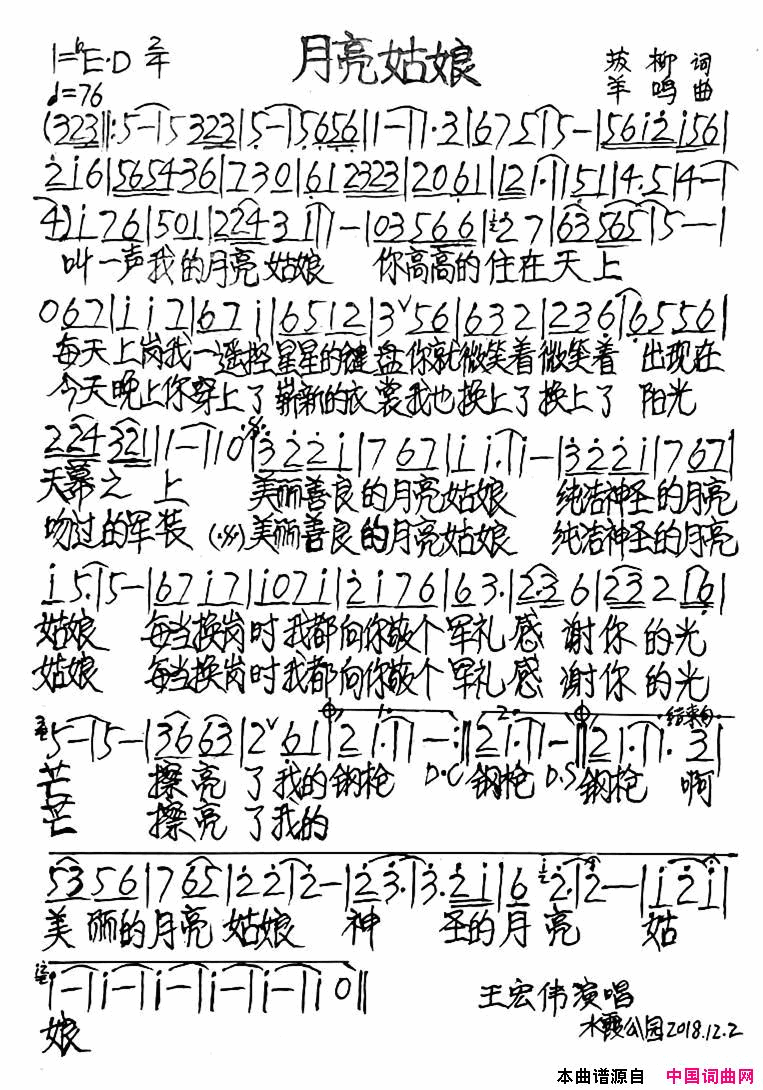 1=♭E·D 2/4 月亮姑娘 拔柳 词
♩=76 羊鸣 曲
(323‖:5-|5 323|5-|5656|1-|1·3|675|5-|56i2i56|
2i6|565436|730|61 2323|2061|121·|1·51|4·5|4-|
4)i76|501|22431|1-|03566|27|63565|5--|
叫一声我的月亮姑娘 你高高的住在天上
067|ii7|67i|6512|3ˇ56|632|2236|6556|
每天上岗我一遥控星星的键盘你就微笑着微笑着 出现在
今天晚上你穿上了崭新的衣裳我也换上了换上了 阳光
224321|1-|10|322i|767|ii·|i-|322i|767|
天幕之上 美丽善良的月亮姑娘 纯洁神圣的月亮
吻过的军装 美丽善良的月亮姑娘 纯洁神圣的月亮
i5·|5-|67i7|i07i|2i76|63·|236|23216|
姑娘 每当换岗时我都向你敬个军礼感谢你的光
姑娘 每当换岗时我都向你敬个军礼感谢你的光
1. 2. 结束句
5-|5-|3663|2ˇ61|21·|1-:‖21·|1-‖21·|1·3|
芒 擦亮了我的钢枪 D.C 钢枪 D.S 钢枪 啊
芒 擦亮了我的
5356|765|22|2-|23·|3·2i|62·|2--|i2i|
美丽的月亮姑娘 神圣的月亮 姑
i-|i-|i-|i-|i-|i0‖
娘
王宏伟演唱
木霞公园2018.12.2
本曲谱源自 中国词曲网